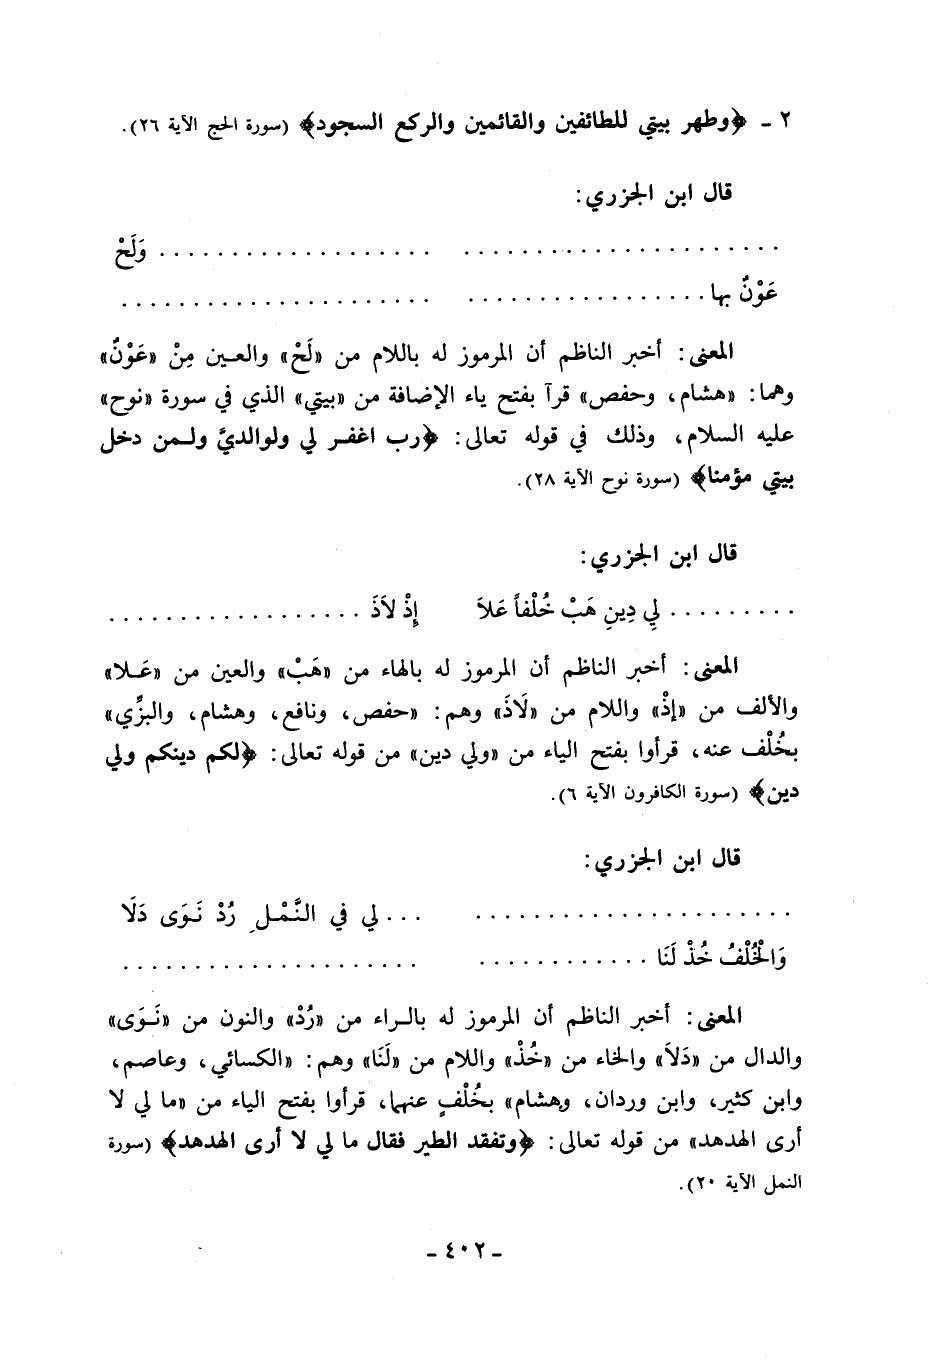 ٢ ـ ﴿وطهر بيتي للطائفين والقائمين والركع السجود﴾ (سورة الحج الآية ٢٦).
قال ابن الجزري:
. . . . . . . . . . . . . . . . . . . . . . . . . . . . . . . . . . . . . . . . وَلَحْ
عَوْنٌ بها . . . . . . . . . . . . . . . . . . . . . . . . . . . . . . . . . . . . . . .
المعنى: أخبر الناظم أن المرموز له باللام من «لَحْ» والعين مِنْ «عَوْنٌ»
وهما: «هشام، وحفص» قرآ بفتح ياء الإضافة من «بيتي» الذي في سورة «نوح»
عليه السلام، وذلك في قوله تعالى: ﴿رب اغفر لي ولوالديَّ ولمن دخل
بيتي مؤمنا﴾ (سورة نوح الآية ٢٨).
قال ابن الجزري:
. . . . . . . . . لِي دِينِ هَبْ خُلْفاً عَلاَ إِذْ لاَذَ . . . . . . . . . . . . . . . . . .
المعنى: أخبر الناظم أن المرموز له بالهاء من «هَبْ» والعين من «عَلا»
والألف من «إذْ» واللام من «لَاذَ» وهم: «حفص، ونافع، وهشام، والبزِّي»
بخُلْف عنه، قرأوا بفتح الياء من «ولي دين» من قوله تعالى: ﴿لكم دينكم ولي
دين﴾ (سورة الكافرون الآية ٦).
قال ابن الجزري:
. . . . . . . . . . . . . . . . . . . . . . . . . لي في النَّمْلِ رُدْ نَوَى دَلَا
وَالْخُلْفُ خُذْ لَنَا . . . . . . . . . . . . . . . . . . . . . . . . . . . . . . . . .
المعنى: أخبر الناظم أن المرموز له بالراء من «رُدْ» والنون من «نَوَى»
والدال من «دَلاَ» والخاء من «خُذْ» واللام من «لَنَا» وهم: «الكسائي، وعاصم،
وابن كثير، وابن وردان، وهشام» بخُلْفٍ عنهما، قرأوا بفتح الياء من «ما لي لا
أرى الهدهد» من قوله تعالى: ﴿وتفقد الطير فقال ما لي لا أرى الهدهد﴾ (سورة
النمل الآية ٢٠).
ـ ٤٠٢ ـ